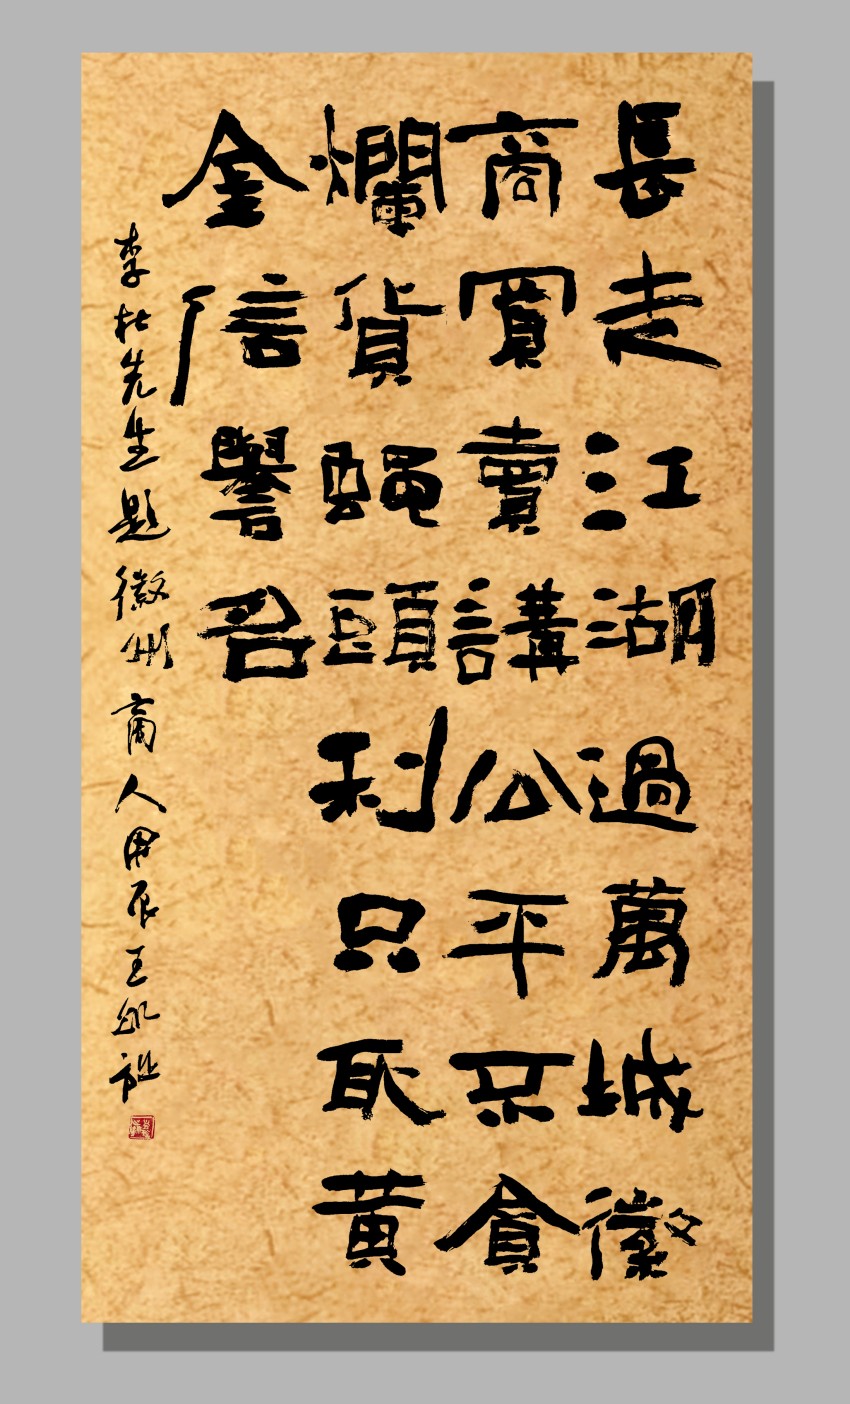 長走江湖過萬城徽
商買賣講公平不貪
爛貨蝇頭利只取黄
金信譽名
李杜先生題徽州商人甲辰王